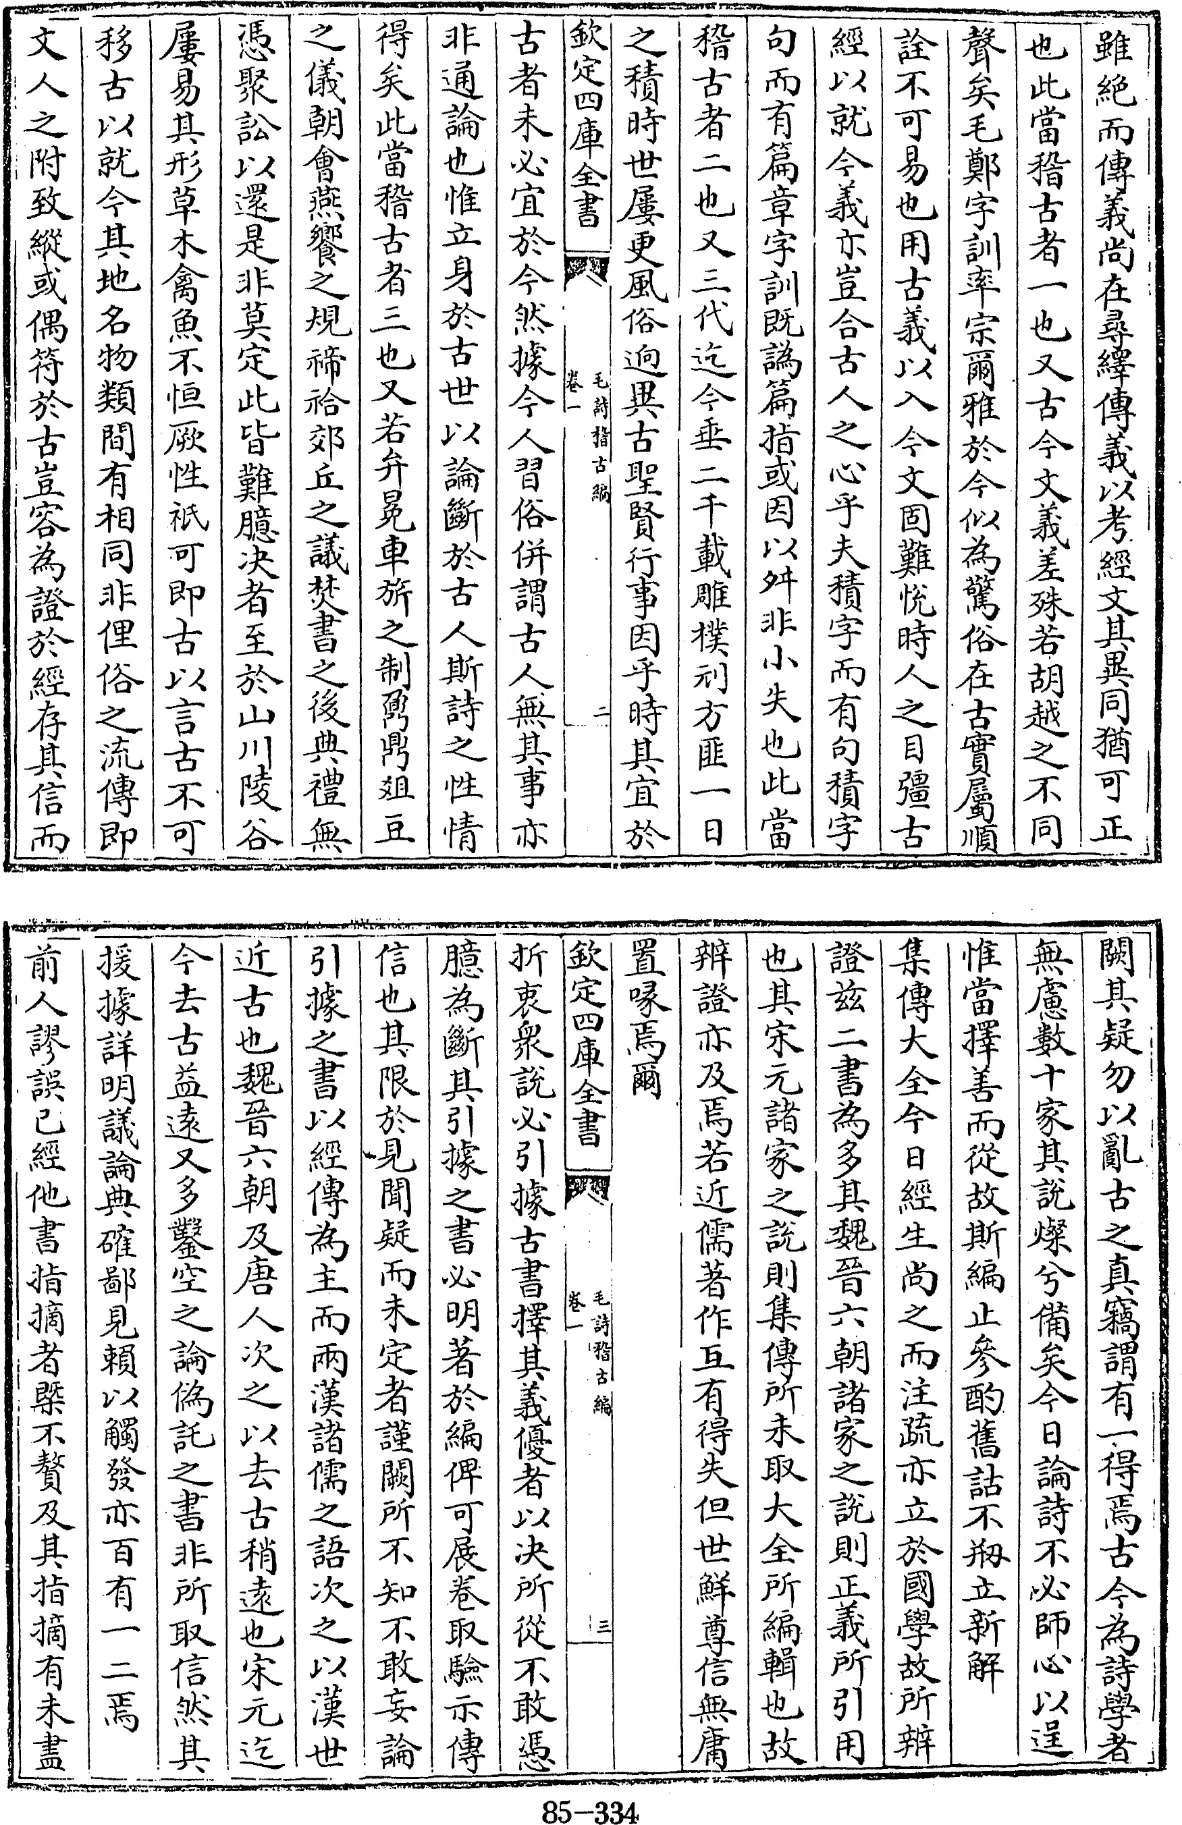 雖絶而傳義尚在尋繹傳義以考經文其異同猶可正
也此當稽古者一也又古今文義差殊若胡越之不同
聲矣毛鄭字訓率宗爾雅於今似為驚俗在古實屬順
詮不可易也用古義以入今文固難悦時人之目彊古
經以就今義亦豈合古人之心乎夫積字而有句積字
句而有篇章字訓既譌篇指或因以舛非小失也此當
稽古者二也又三代迄今垂二千載雕樸刓方匪一日
之積時世屢更風俗逈異古聖賢行事因乎時其宜於
欽定四庫全書
毛詩稽古編
卷一
二
古者未必宜於今然據今人習俗併謂古人無其事亦
非通論也惟立身於古世以論斷於古人斯詩之性情
得矣此當稽古者三也又若弁冕車旂之制鬲鼎爼豆
之儀朝會燕饗之規禘祫郊丘之議焚書之後典禮無
憑聚訟以還是非莫定此皆難臆决者至於山川陵谷
屢易其形草木禽魚不恒厥性祇可即古以言古不可
移古以就今其地名物類間有相同非俚俗之流傳即
文人之附致縱或偶符於古豈容為證於經存其信而
闕其疑勿以亂古之真竊謂有一得焉古今為詩學者
無慮數十家其説燦兮備矣今日論詩不必師心以逞
惟當擇善而從故斯編止參酌舊詁不剏立新解
集傳大全今日經生尚之而注疏亦立於國學故所辨
證兹二書為多其魏晉六朝諸家之説則正義所引用
也其宋元諸家之説則集傳所未取大全所編輯也故
辨證亦及焉若近儒著作互有得失但世鮮尊信無庸
置喙焉爾
欽定四庫全書
毛詩稽古編
卷一
三
折衷衆説必引據古書擇其義優者以决所從不敢憑
臆為斷其引據之書必明著於編俾可展卷取驗示傳
信也其限於見聞疑而未定者謹闕所不知不敢妄論
引據之書以經傳為主而兩漢諸儒之語次之以漢世
近古也魏晉六朝及唐人次之以去古稍遠也宋元迄
今去古益遠又多鑿空之論偽託之書非所取信然其
援據詳明議論典確鄙見賴以觸發亦百有一二焉
前人謬誤已經他書指摘者槩不贅及其指摘有未盡
85-334